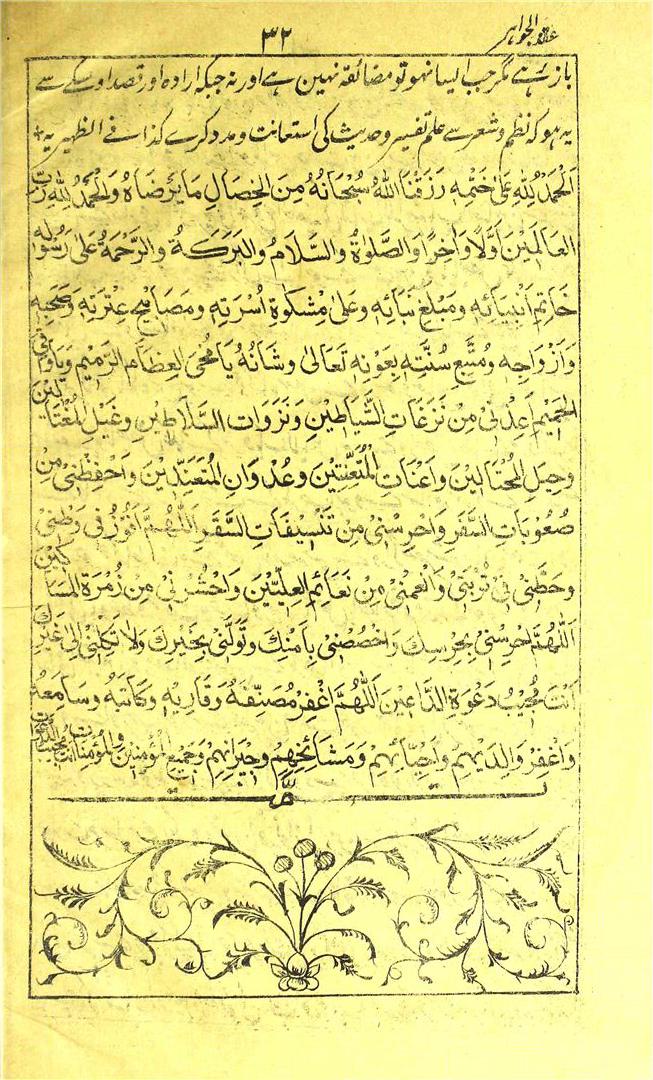 عقد الجواہر
۳۲
باز رہے مگر جب ایسا نہو تو مضائقہ نہین ہے اور نہ جبکہ ارادہ اور قصد اوسکے سے
یہ ہو کہ نظم و شعر سے علم تفسیر و حدیث کی استعانت و مدد کرے کذا فے الظہیریہ
اَلْحَمْدُ لِلّٰهِ عَلٰی خَتْمِهٖ رَزَقْنَا اللّٰهُ سُبْحَانَهُ مِنَ الْخِصَالِ مَا یَرْضَاهُ وَالْحَمْدُ لِلّٰهِ رَبِّ
الْعَالَمِیْنَ اَوَّلًا وَاٰخِرًا وَالصَّلٰوةُ وَالسَّلَامُ وَالْبَرَكَةُ وَالرَّحْمَةُ عَلٰی رَسُوْلِهٖ
خَاتِمِ اَنْبِیَائِهٖ وَمَبْلَغِ نَبَائِهٖ وَعَلٰی مِشْكٰوةِ اُسْرَتِهٖ وَمَصَابِیْحِ عِتْرَتِهٖ وَصَحْبِهٖ
وَاَزْوَاجِهٖ وَمُتَّبِعِ سُنَّتِهٖ بِعَوْنِهٖ تَعَالٰی وَشَانُهُ یَا مُحْیَ الْعِظَامِ الرَّمِیْمِ وَیَا وَاقِیَ
الْحَمِیْمِ اَعِذْنِیْ مِنْ نَزَغَاتِ الشَّیَاطِیْنِ وَنَزَوَاتِ السَّلَاطِیْنِ وَغَیْلِ الْمُغْتَالِیْنَ
وَحِیَلِ الْمُحْتَالِیْنَ وَاِعْنَاتِ الْمُتَعَنِّتِیْنَ وَعُدْوَانِ الْمُتَعَنِّدِیْنَ وَاحْفِظْنِیْ مِنْ
صُعُوْبَاتِ السَّفَرِ وَاحْرِسْنِیْ مِنْ السَّقَرِ اَللّٰهُمَّ فِیْ وَطَنِیْ
وَحَظِّنِیْ فِیْ تُرْبَتِیْ وَانْعِمْنِیْ مِنْ نَعَائِمِ الْعِلِیِّیْنَ وَاحْشُرْنِیْ مِنْ زُمْرَةِ الْمَسَاكِیْنَ
اَللّٰهُمَّ احْرِسْنِیْ بِحِرْسِكَ وَاخْصُصْنِیْ بِاَمْنِكَ وَتَوَلَّنِیْ بِخَیْرِكَ وَلَا تَكِلْنِیْ اِلٰی غَیْرِكَ
اَنْتَ مُجِیْبُ دَعْوَةِ الدَّاعِیْنَ اَللّٰهُمَّ اغْفِرْ مُصَنِّفَهُ وَقَارِیَهُ وَكَاتِبَهُ وَسَامِعَهُ
وَاغْفِرْ وَالِدَیْهِمْ وَاَحِبَّائِهِمْ وَمَشَائِخِهِمْ وَجِیْرَانِهِمْ وَجَمِیْعِ الْمُؤْمِنِیْنَ وَالْمُؤْمِنَاتِ اَنْتَ مُجِیْبُ الدَّعَوَاتِ